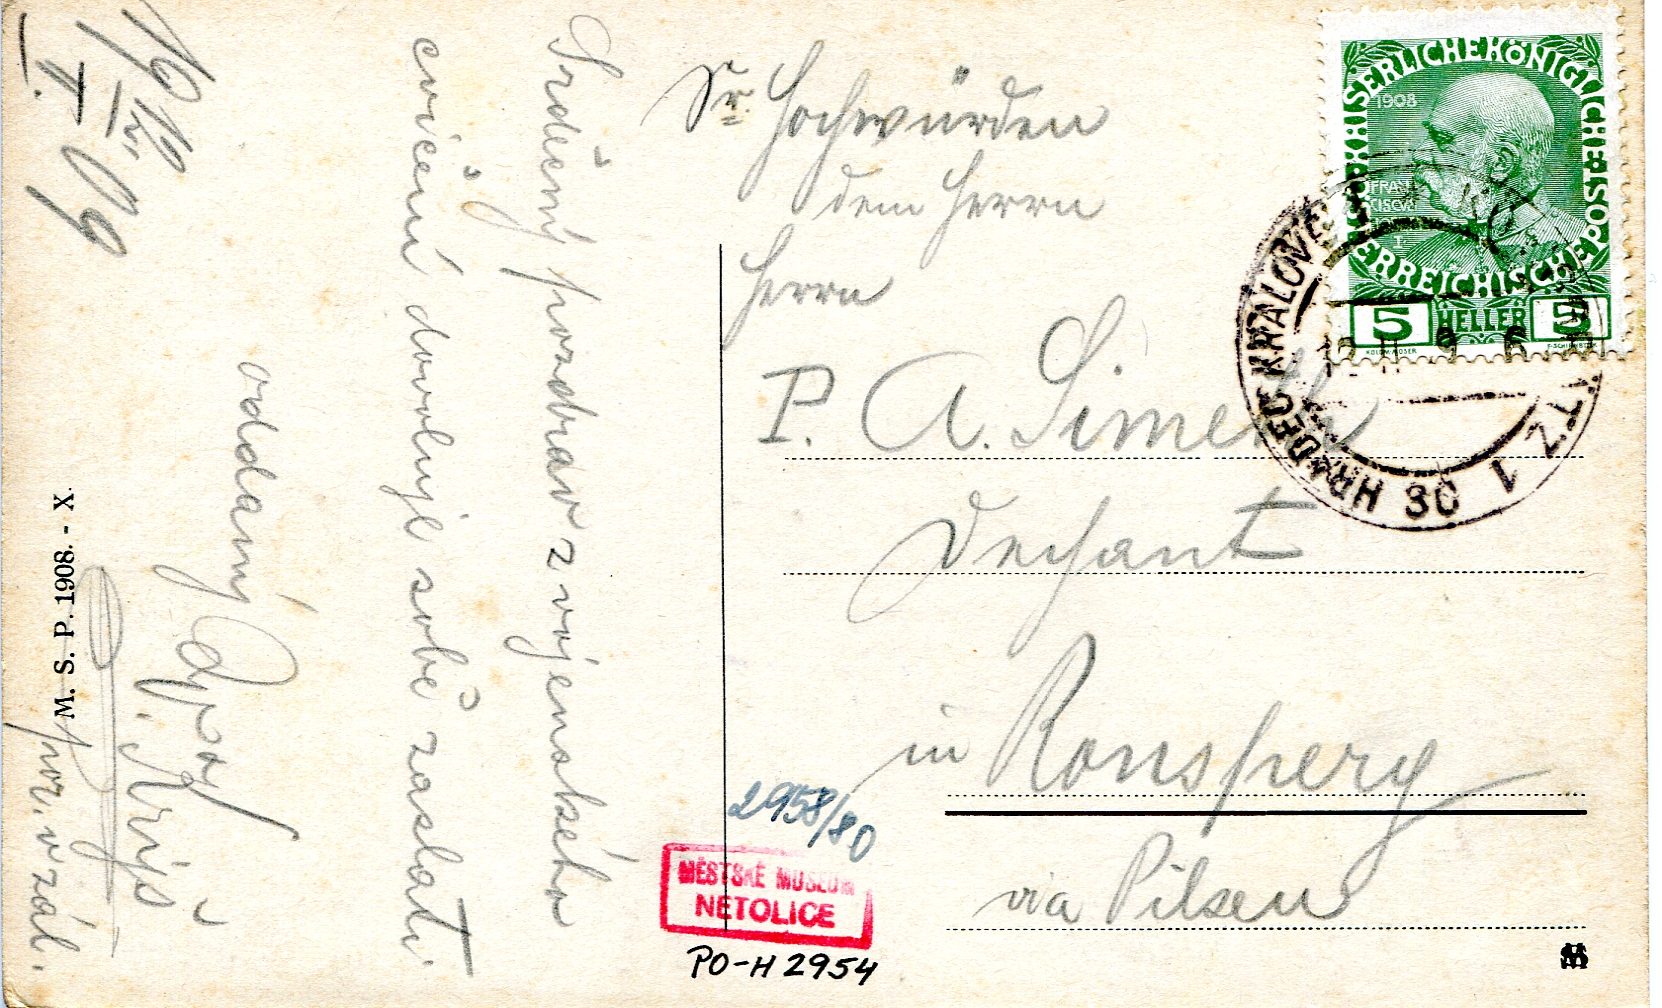 19 12/VI 09
I.
Srdečný pozdrav z vojenského
cvičení dovoluji sobě zaslati.
oddaný
por. v zál.
M. S. P. 1908. - X.
Sr. Hochwürden
dem Herrn
Herrn
P. A. Šimek
Dechant
in Ronsperg
via Pilsen
KAISERLICHE KÖNIGLICHE ÖSTERREICHISCHE POST
1908
FRAN
CISCVS
I
5 HELLER 5
HRADEC KRÁLOVÉ
2958/80
MĚSTSKÉ MUSEUM
NETOLICE
PO-H 2954